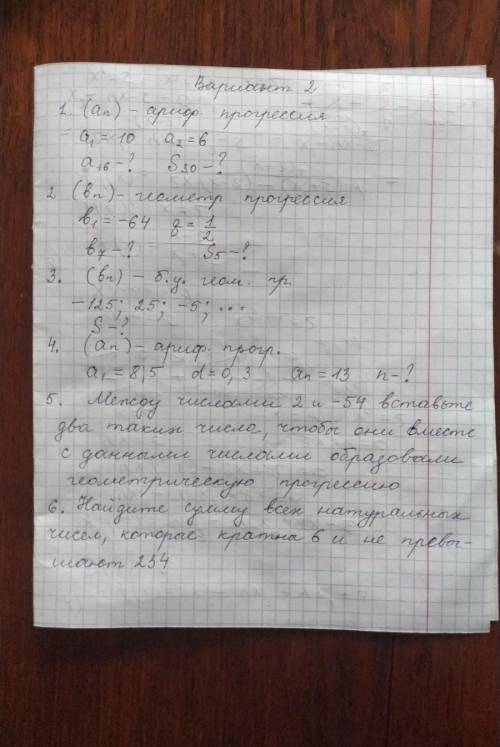 Вариант 2
1. (an) - ариф. прогрессия
a1 = 10 a2 = 6
a16 - ? S30 - ?
2 (bn) - геометр прогрессия
b1 = -64 q = 1/2
b7 - ? S5 - ?
3. (bn) - б.у. геом. пр.
-125; 25; -5; ...
S - ?
4. (an) - ариф. прогр.
a1 = 8,5 d = 0,3 an = 13 n - ?
5. Между числами 2 и -54 вставьте
два таких число, чтобы они вместе
с данными числами образовали
геометрическую прогрессию
6. Найдите сумму всех натуральных
чисел, которые кратна 6 и не превы-
шают 234